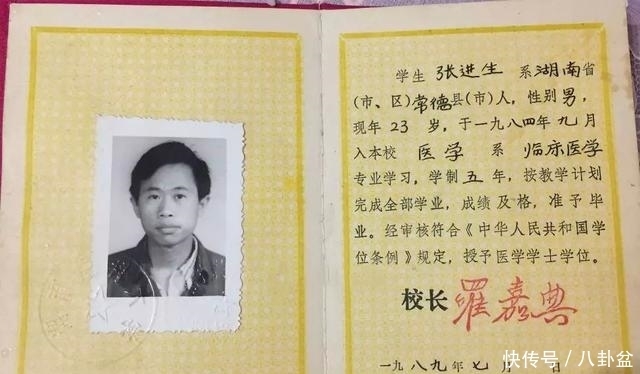 学生 张进生 系湖南省
(市、区)常德县(市)人，性别男，
现年 23 岁，于一九八四年九月
入本校 医学 系 临床医学
专业学习，学制五年，按教学计划
完成全部学业，成绩及格，准予毕
业。经审核符合《中华人民共和国学
位条例》规定，授予医学学士学位。
校长 罗嘉典
一九八九年七月 日
快传号/八卦盆